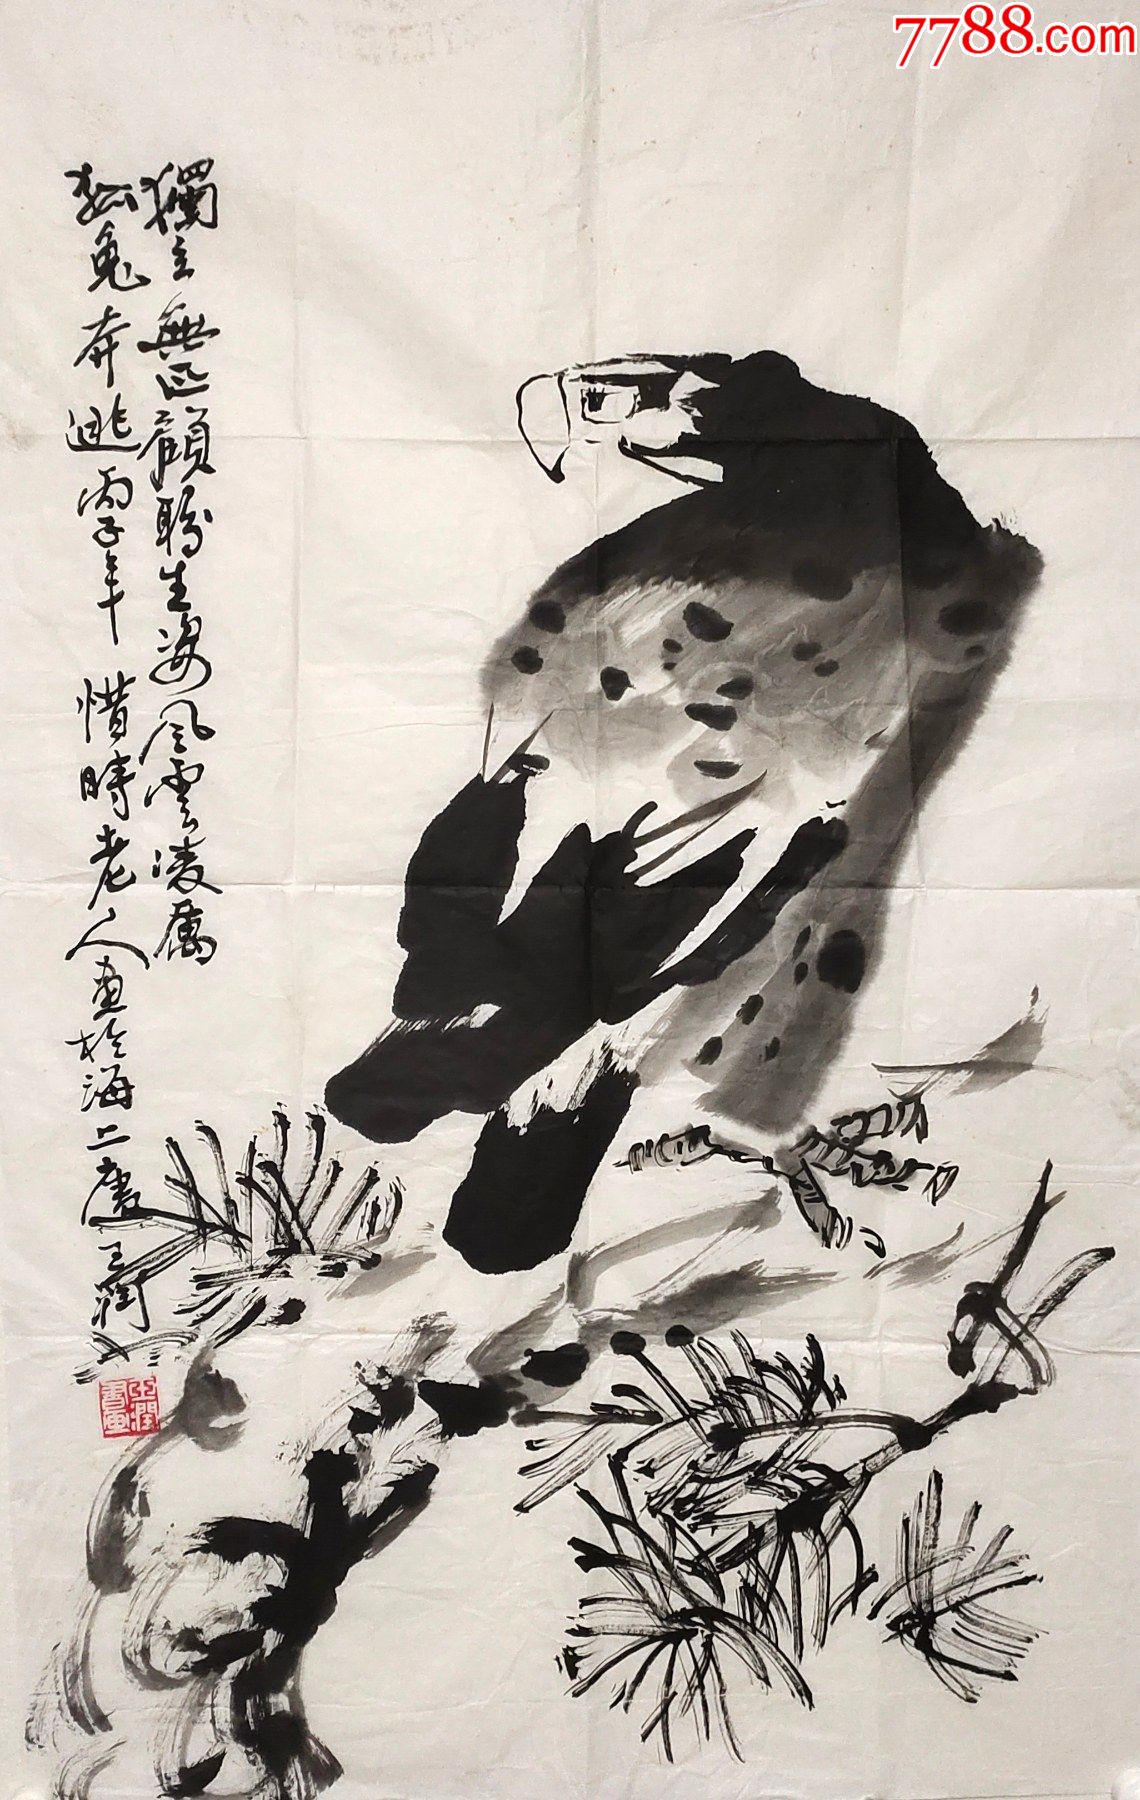 7788.com
獨立無匹顧盼生姿風雲凌厲
狐兔奔逃丙子年惜時老人畫於海上康正潤